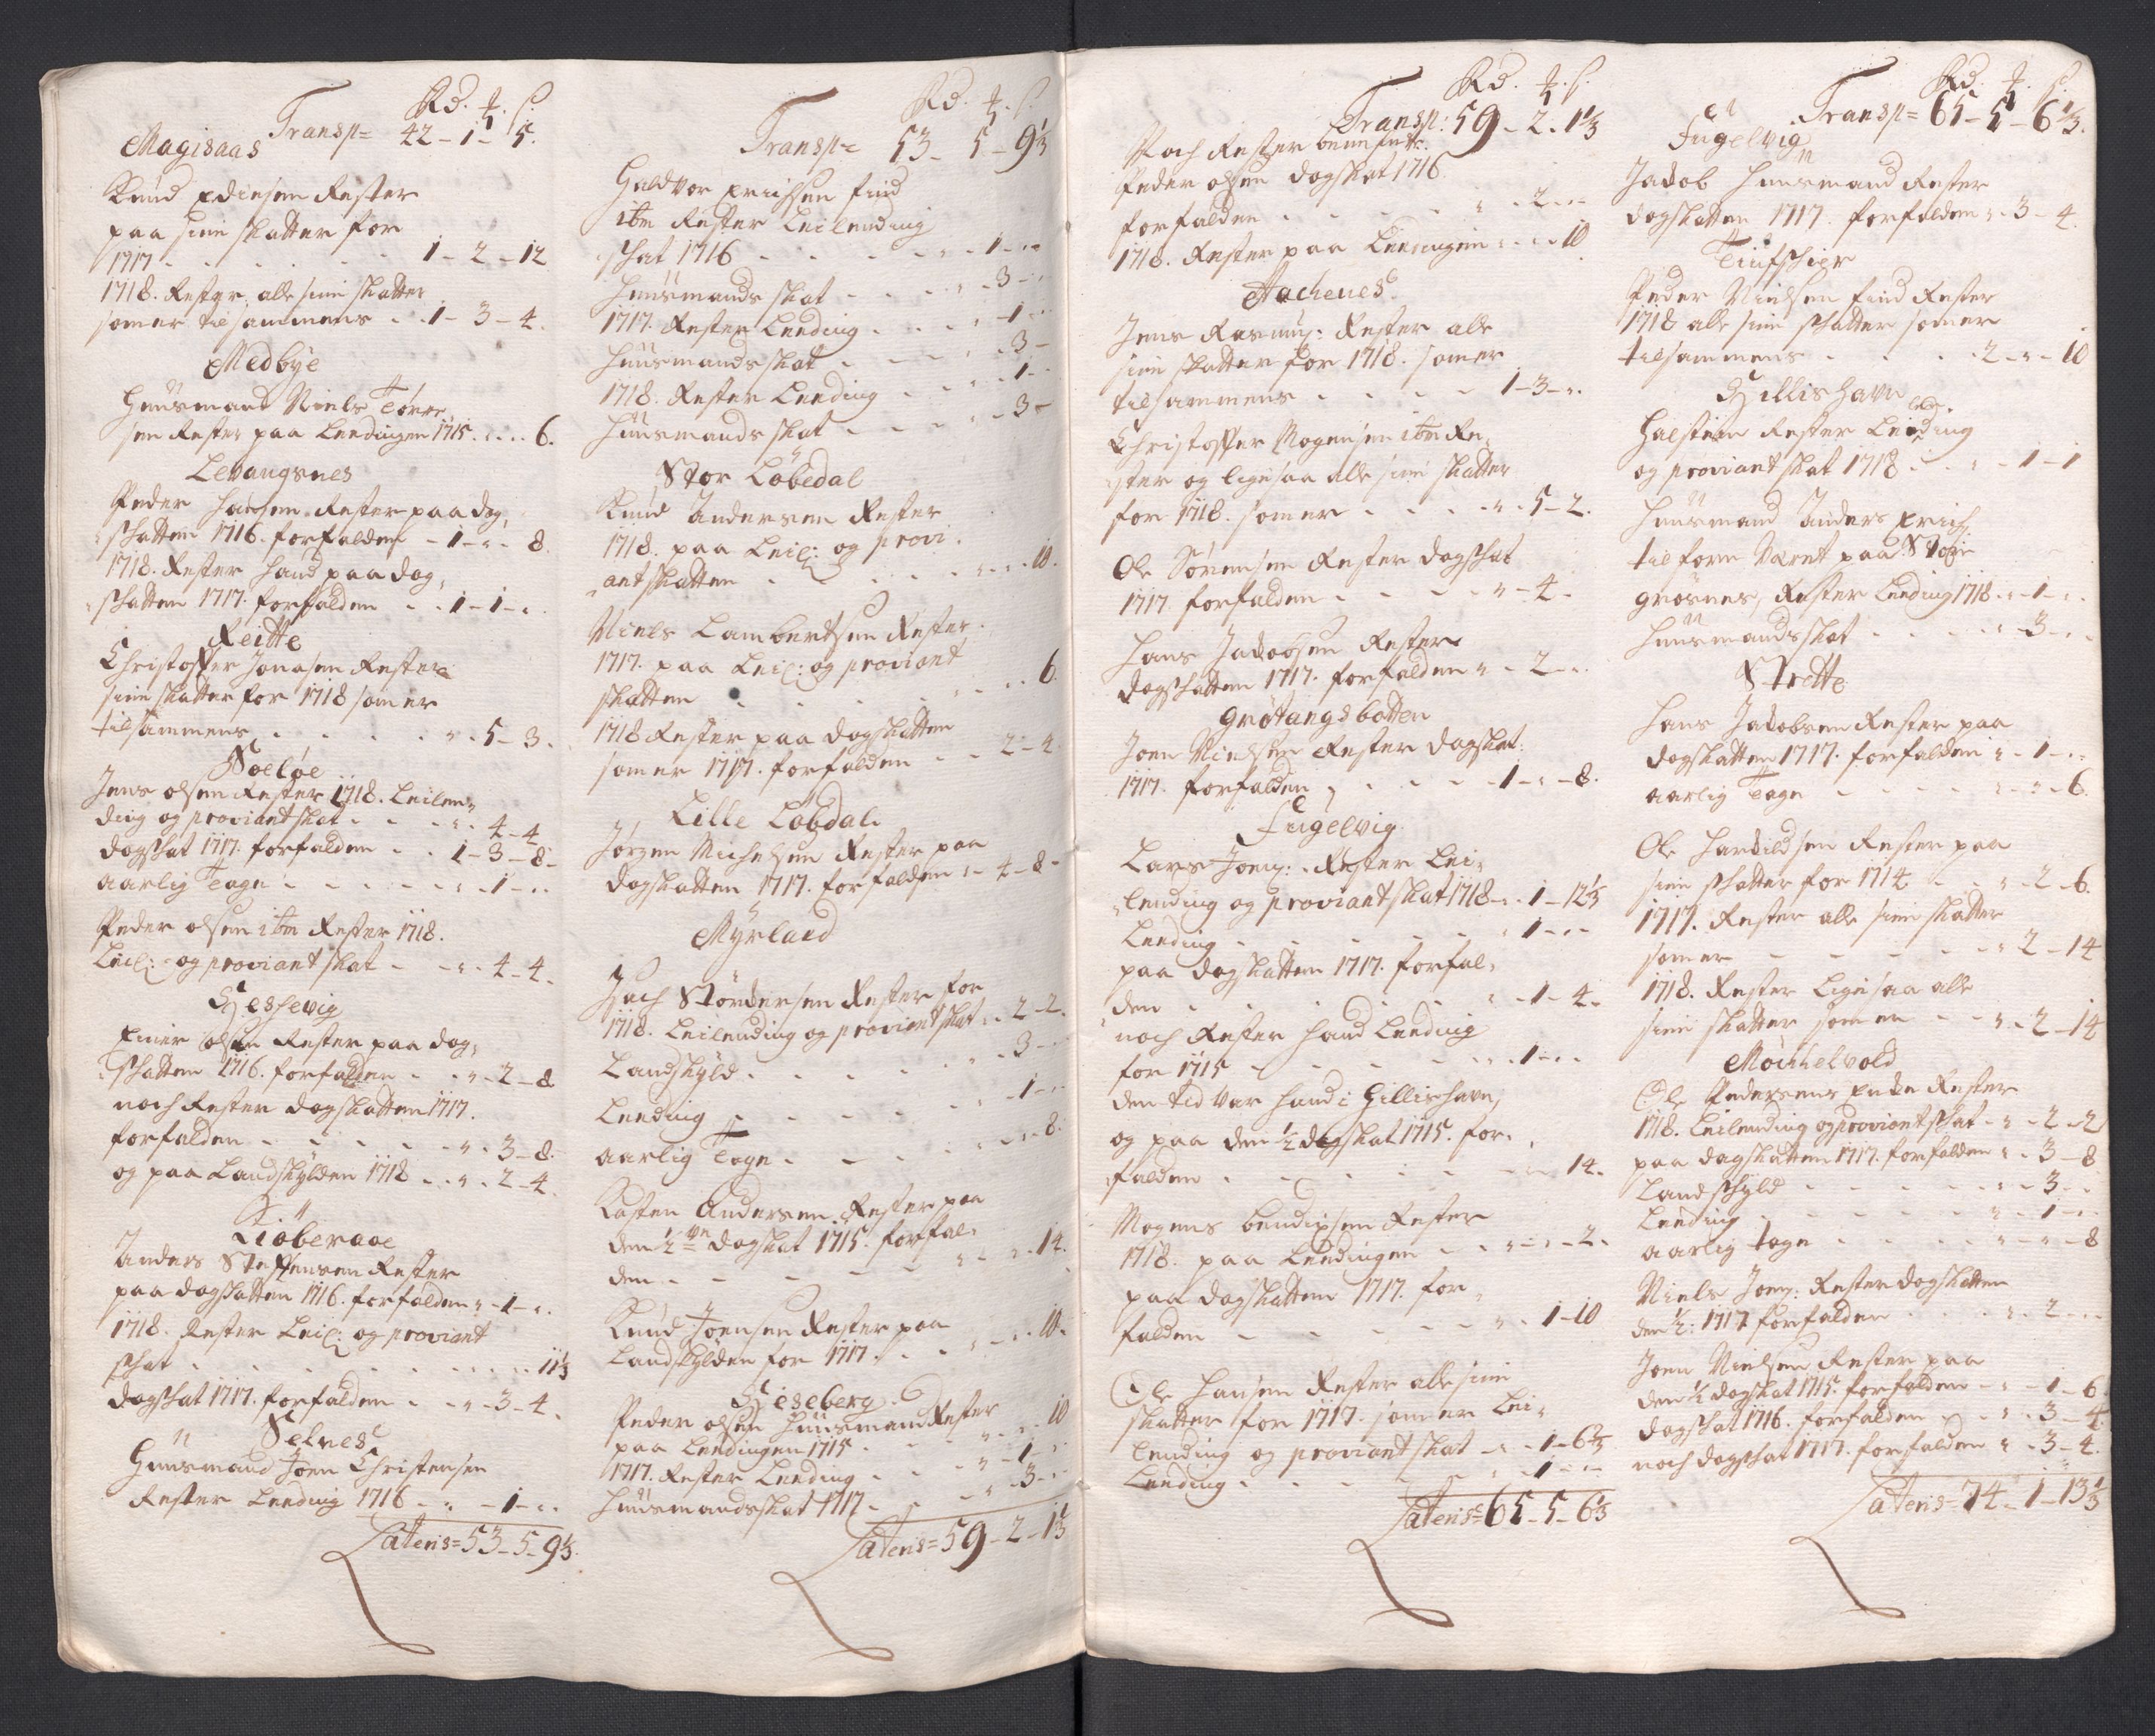 Rd. ƒ. s.
Transp= 42-1-5.
Magisaas
Knud Ediensen Rester
paa sine skatter for
1717 - - - - - 1-2-12
1718. Rester alle sine skatter
somer tilsammens - - 1-3-4.
Medbye
Huusmand Niels Tørre
sen Rester paa Leedingen 1715. - - 6.
Levangsnes
Peder Hansen Rester paa dag,
schatten 1716. forfalden - 1-"- 8.
1718. Rester hand paa dag,
schatten 1717. forfalden - - 1-1-"
Reitte
Christoffer Jonasen Rester
sine skatter for 1718 som er
tilsammens - - - - "- 5-3.
Soeløe
Jens olsen Rester 1718. Leilen,
ding og proviant skat - - - "- 4-4
dagskat 1717. forfalden - - 1-3-8-
aarlig Tage - - - - - "-1-"
Peder olsen ibm Rester 1718.
Leil: og proviant skat - - "- 4-4.
Hessevig
Einer olsen Rester paa dag,
schatten 1716. forfalden - - "- 2-8.
noch Rester dagskatten 1717.
forfalden - - - - - "- 3-8.
og paa Landskylden 1718 - - "- 2-4.
Kioberaae
Anders Steffensen Rester
paa dagskatten 1716. forfalden "-1-"
1718. Rester Leil: og proviant
skat - - - - - - - - 11⅓
dagskat 1717. forfalden - - "- 3-4.
Selnes
Huusmand Joen Christensen
Rester Leeding 1716 - "-1-"
Lateris= 53-5-9⅓.

Rd. ƒ. s.
Transp= 53-5-9⅓
Haldvor Erichsen find
ibm Rester Leilending
skat 1716 - - - - "-1-"
huusmands skat - - - - "-3-"
1717. Rester Leeding - - - "-1-"
huusmandsskat - - - - "-3-
1718. Rester Leeding - - - "-1-"
huusmands skat - - - - "-3-
Stor Løbedal
Knud Andersen Rester
1718. paa Leil: og provi,
antskatten - - - - "-"- 10.
Niels Lambertsen Rester
1717. paa Leil: og proviant
skatten - - - - "-"- 6.
1718 Rester paa dagskatten
somer 1717. forfalden - - 2-4.
Lille Løbdal
Jørgen Michelsen Rester paa
dagskatten 1717. forfalden "-4-8-
Myrland
Zach Størdersen Rester for
1718. Leilending og proviant skat "- 2-2.
Landskyld - - - - - "-3-"
Leeding - - - - - "-1-"
aarlig Tage - - - - "-"-8.
Casten Andersen Rester paa
den ½ dagskat 1715. forfal,
den - - - - - - "-"-14.
Knud Joensen Rester paa
Landskylden for 1717 - - "-"-10.
Heseberg
Peder olsen huusmand Rester
paa Leedingen 1715 - - - "-"-10
1717. Rester Leeding - - - "-1-"
huusmandsskat 1717 - - - "-3-"
Lateris= 59-2-1⅓

Rd. ƒ. s.
Transp: 59-2-1⅓
Noch Rester benefnte
Peder olsen dagskat 1716.
forfalden - - - - - "-2-"
1718. Rester paa Leedingen "-"- 10.
Aachenes
Jens Rasmus: Rester alle
sine skatter for 1718. somer
tilsammens - - - - 1-3-"
Christoffer Mogensen ibm Re,
ster og ligesaa alle sine skatter
for 1718. somer - - - - "-5-2.
Ole Sørensen Rester dagskat
1717. forfalden - - - - "-4-
Hans Jacobsen Rester
dagskatten 1717. forfalden "-2-"
Grøtangsbotten
Joen Nielsen Rester dagskat:
1717. forfalden - - - - 1-"-8.
Fugelvig
Lars Joens: Rester Lei,
lending og proviantskat 1718 -"-1-12⅓
Leeding - - - - - - "-1-"
paa dagskatten 1717. forfal,
den - - - - - - "-1-4.
noch Rester hand Leeding
for 1715 - - - - - "-1-"
den tid var hand i Gillishavn,
og paa den ½ dagskat 1715. for,
falden - - - - - - "-"-14.
Mogens Bendixsen Rester
1718. paa Leedingen - - "-"-2.
paa dagskatten 1717. for,
falden - - - - - - "-1-10
Ole Hansen Rester alle sine
skatter for 1717. somer Lei,
lending og proviantskat - "-1-6⅔
Leeding - - - - - - "-1-"
Lateris= 65-5-6⅓

Rd. ƒ. s.
Transp= 65-5-6⅓.
Fugelvig
Jacob Huusmand Rester
dagskatten 1717. forfalden "-3-4.
Tiufschier
Peder Nielsen find Rester
1718 alle sine skatter somer
tilsammens - - - - 2-"-10
Hillishavn
Halstein Rester Leeding
og proviant skat 1718 - - "-1-1
Huusmand Anders Erich,
tilforn været paa Store
grøsnes, Rester Leeding 1718 "-1-"
huusmandsskat - - - - "-3-"
Strette
Hans Jacobsen Rester paa
dagskatten 1717. forfalden "-1-"
aarlig Tage - - - - "-"-6.
Ole Harkildsen Rester paa
sine skatter for 1714 - - "-2-6.
1717. Rester alle sine skatter
somer - - - - - "-2-14
1718. Rester Ligesaa alle
sine skatter somer - - "-2-14
Mochhelvold
Ole Pedersens Enke Rester
1718. Leilending og proviantskat "-2-2
paa dagskatten 1717. forfalden "-3-8
Landskyld - - - - - "-3-"
Leeding - - - - - - "-1-"
aarlig tage - - - - - "-"-8
Niels Joens: Rester dagskatten
den ½: 1717 forfalden - - - "-2-"
Joen Nielsen Rester paa
den ½ dagskat 1715. forfalden - "-1-6
dagskat 1716. forfalden - - "-3-4.
noch dagskat 1717. forfalden "-3-4.
Lateris= 74-1-13⅓